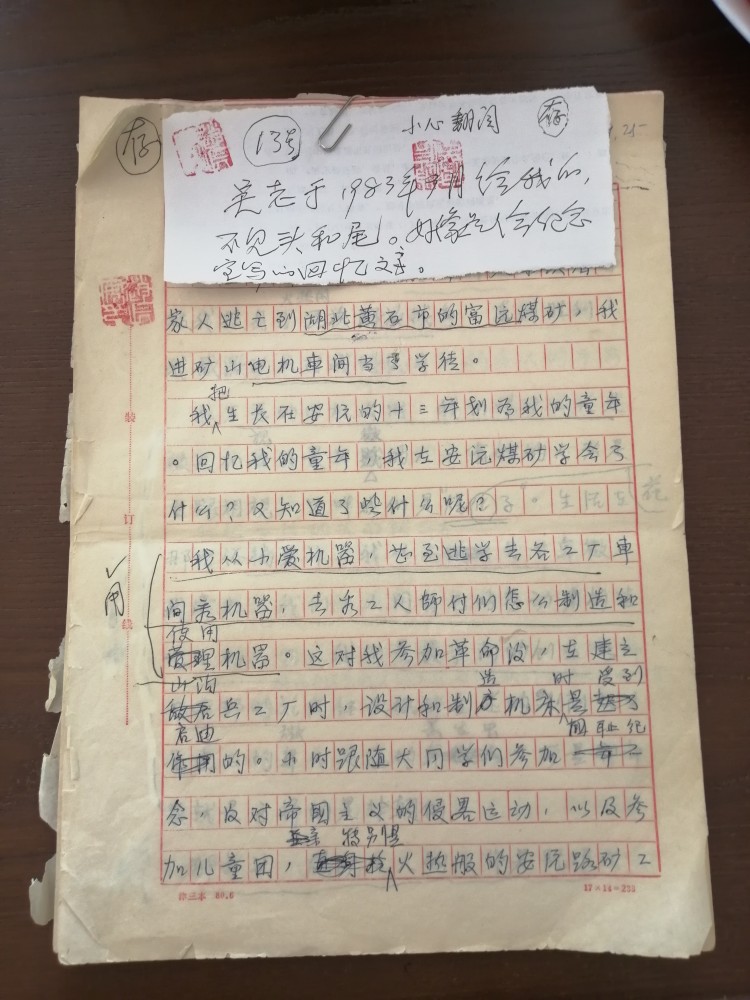 存
13号
小心翻阅
存
吴老于1983年7月给我的,
不见头和尾。好像是 会纪念
室写的回忆文章。
家人逃亡到湖北黄石市的富源煤矿,我
进矿山电机车间当学徒。
把
我生长在安沅的十三年划为我的童年
。回忆我的童年,我在安沅煤矿学会了
什么?又知道了些什么呢?
生活在
我从小爱机器,甚至逃学去各工厂车
间看机器,去看工人師付们怎么制造和
使用
用
机器。这对我参加革命后,在建立
造 时 受到
兵工厂时,设计和制机床是
启迪
的。小时跟随大同学们参加
国耻纪
念,反对帝国主义的侵畧运动,以及参
特别是
加儿童团,火热般的安沅路矿工
装
订
线
17×14=238